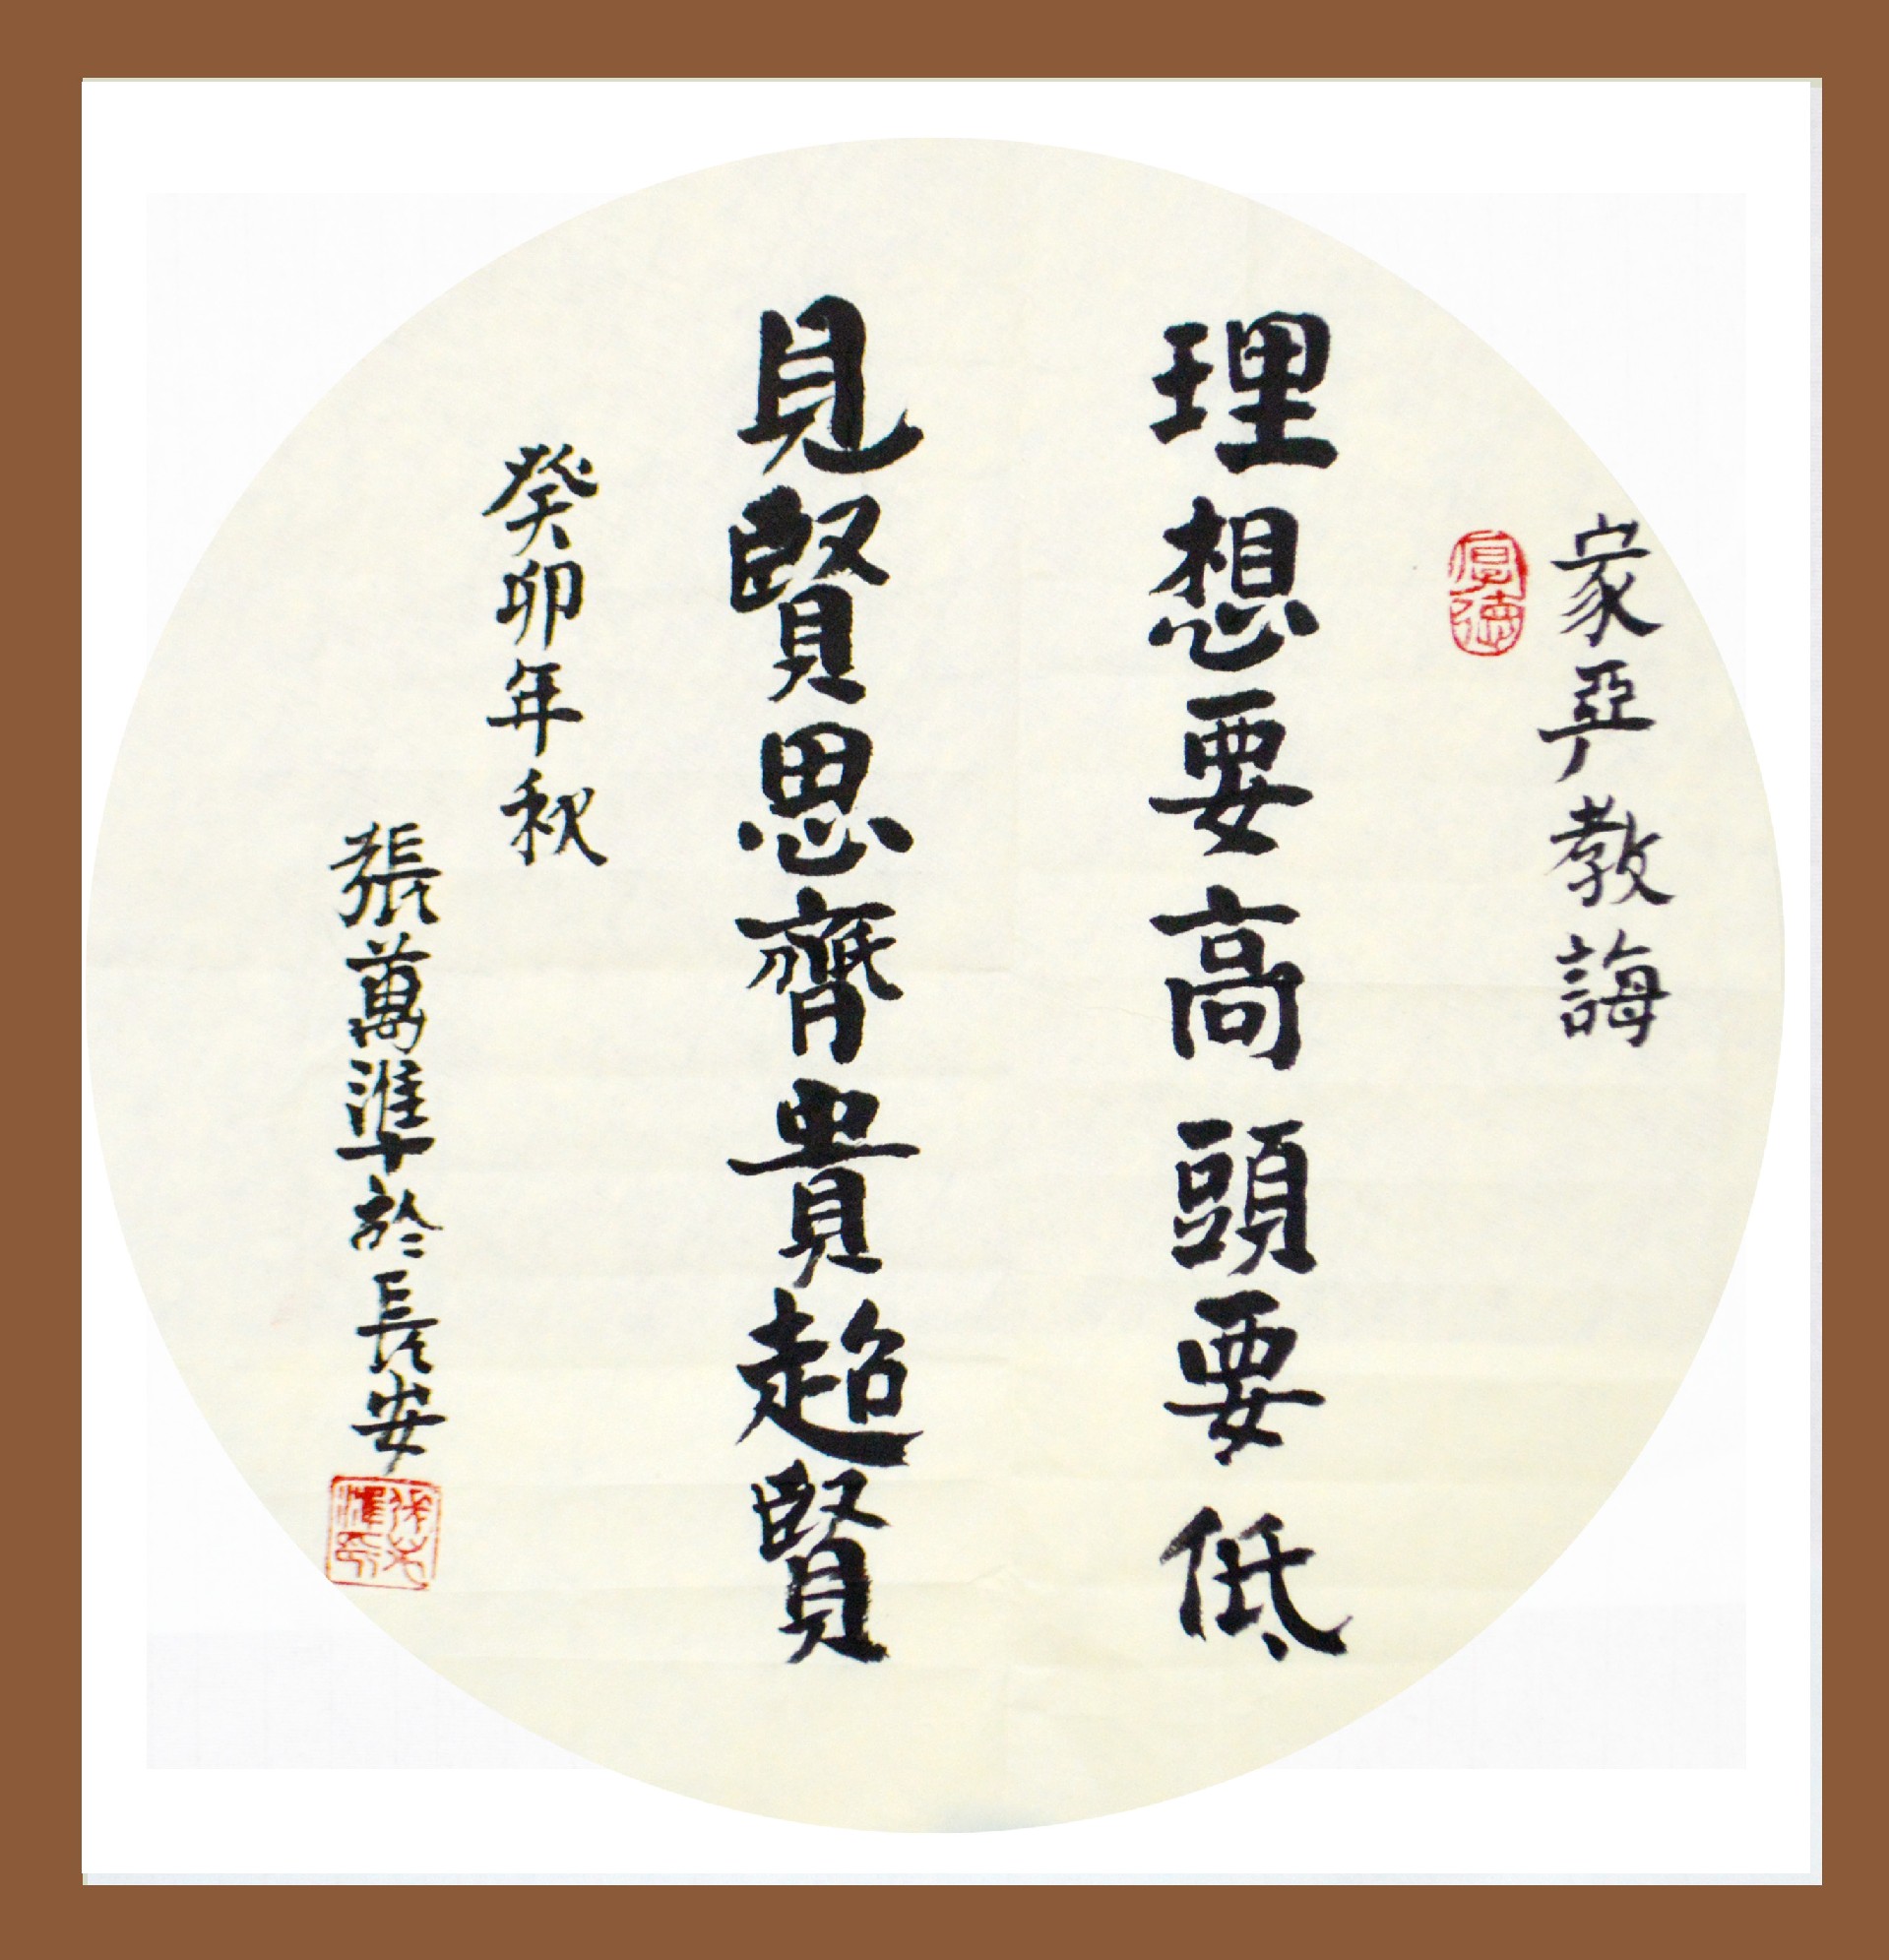 家嚴教誨
厚德
理想要高頭要低
見賢思齊貴超賢
癸卯年秋
張萬準於長安